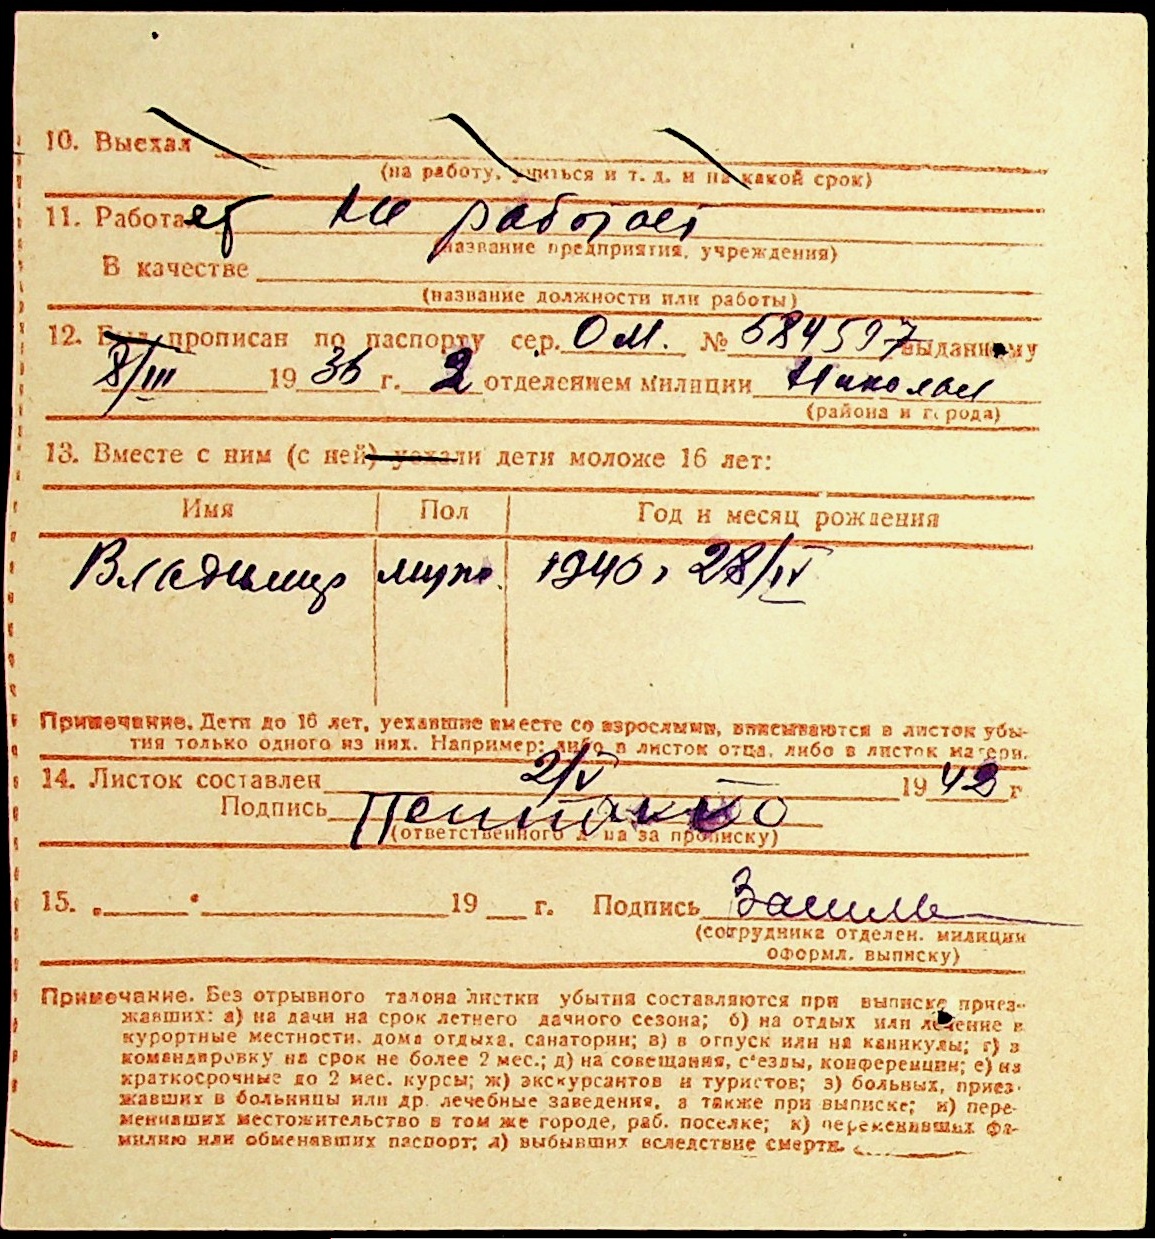 10. Выехал
(на работу, учиться и т. д. и на какой срок)
11. Работает не работает
(название предприятия, учреждения)
В качестве
(название должности или работы)
12. Был прописан по паспорту сер. ОМ. № 584597 выданному
8/III 1936 г. 2 отделением милиции
(района и города)
13. Вместе с ним (с ней) уехали дети моложе 16 лет:
Имя Пол Год и месяц рождения
Владимир муж. 1940, 28/IV
Примечание. Дети до 16 лет, уехавшие вместе со взрослыми, вписываются в листок убы-
тия только одного из них. Например: либо в листок отца, либо в листок матери.
14. Листок составлен 2/V 1942 г
Подпись
(ответственного лица за прописку)
15. „ " 19 г. Подпись
(сотрудника отделен. милиции
оформл. выписку)
Примечание. Без отрывного талона листки убытия составляются при выписке приез-
жавших: а) на дачи на срок летнего дачного сезона; б) на отдых или лечение в
курортные местности, дома отдыха, санатории; в) в отпуск или на каникулы; г) в
командировку на срок не более 2 мес.; д) на совещания, с'езды, конференции; е) на
краткосрочные до 2 мес. курсы; ж) экскурсантов и туристов; з) больных, приез-
жавших в больницы или др. лечебные заведения, а также при выписке; и) пере-
менивших местожительство в том же городе, раб. поселке; к) переменивших фа-
милию или обменявших паспорт; л) выбывших вследствие смерти.